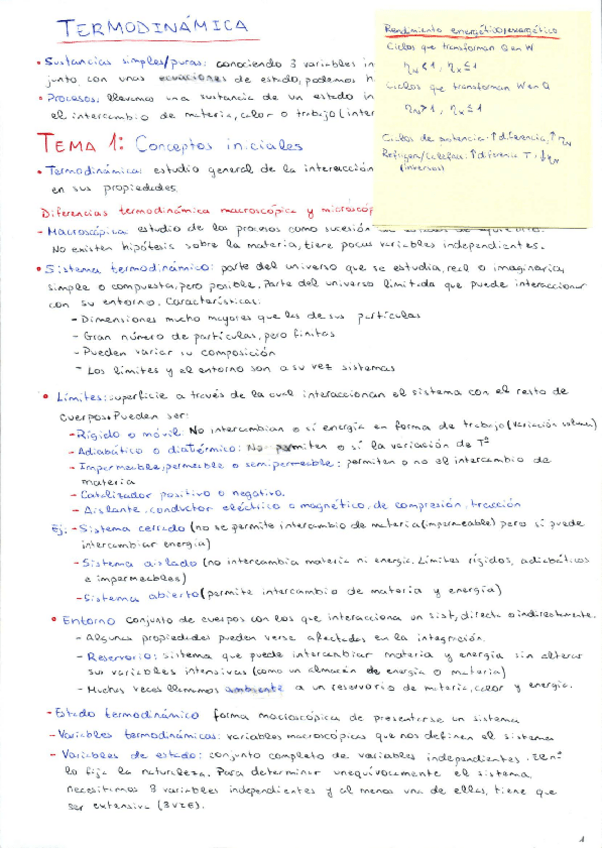 TERMODINÁMICA
• Sustancias simples/puras: conociendo 3 variables in
junto con unas ecuaciones de estado, podemos h
• Procesos: llevamos una sustancia de un estado in
el intercambio de materia, calor o trabajo (inter
Rendimiento energético/exergético
Ciclos que transforman Q en W
η < 1, ηx ≤ 1
Ciclos que transforman W en Q
η > 1, ηx ≤ 1
Ciclos de potencia: ↑ diferencia, ↑ η
↑ diferencia T, ↓ η
(inversos)
TEMA 1: Conceptos iniciales
• Termodinámica: estudio general de la interacción
en sus propiedades.
Diferencias termodinámica macroscópica y microscóp
- Macroscópica: estudio de los procesos como sucesión de estados de equilibrio.
No existen hipótesis sobre la materia, tiene pocas variables independientes.
• Sistema termodinámico: parte del universo que se estudia, real o imaginaria,
simple o compuesta, pero posible. Parte del universo limitada que puede interaccionar
con su entorno. Características:
- Dimensiones mucho mayores que las de sus partículas
- Gran número de partículas, pero finitas
- Pueden variar su composición
- Los límites y el entorno son a su vez sistemas
• Límites: superficie a través de la cual interaccionan el sistema con el resto de
cuerpos. Pueden ser:
- Rígido o móvil No intercambian o sí energía en forma de trabajo (variación volumen)
- Adiabático o diatérmico: No permiten o sí la variación de Tª
- Impermeable, permeable o semipermeable: permiten o no el intercambio de
materia
- Catalizador positivo o negativo.
- Aislante, conductor eléctrico o magnético, de compresión, tracción
Ej: - Sistema cerrado (no se permite intercambio de materia (impermeable) pero sí puede
intercambiar energía)
- Sistema aislado (no intercambia materia ni energía. Límites rígidos, adiabáticos
e impermeables)
- Sistema abierto (permite intercambio de materia y energía)
• Entorno conjunto de cuerpos con los que interacciona un sist, directa o indirectamente.
- Algunas propiedades pueden verse afectadas en la integración.
- Reservorio: sistema que puede intercambiar materia y energía sin alterar
sus variables intensivas (como un almacén de energía o materia)
- Muchas veces llamamos ambiente a un reservorio de materia, calor y energía.
- Estado termodinámico forma macroscópica de presentarse un sistema
- Variables termodinámicas: variables macroscópicas que nos definen el sistema
- Variables de estado: conjunto completo de variables independientes. El nº
lo fija la naturaleza. Para determinar unequívocamente el sistema,
necesitamos 3 variables independientes y al menos una de ellas, tiene que
ser extensiva (3VIE).
1